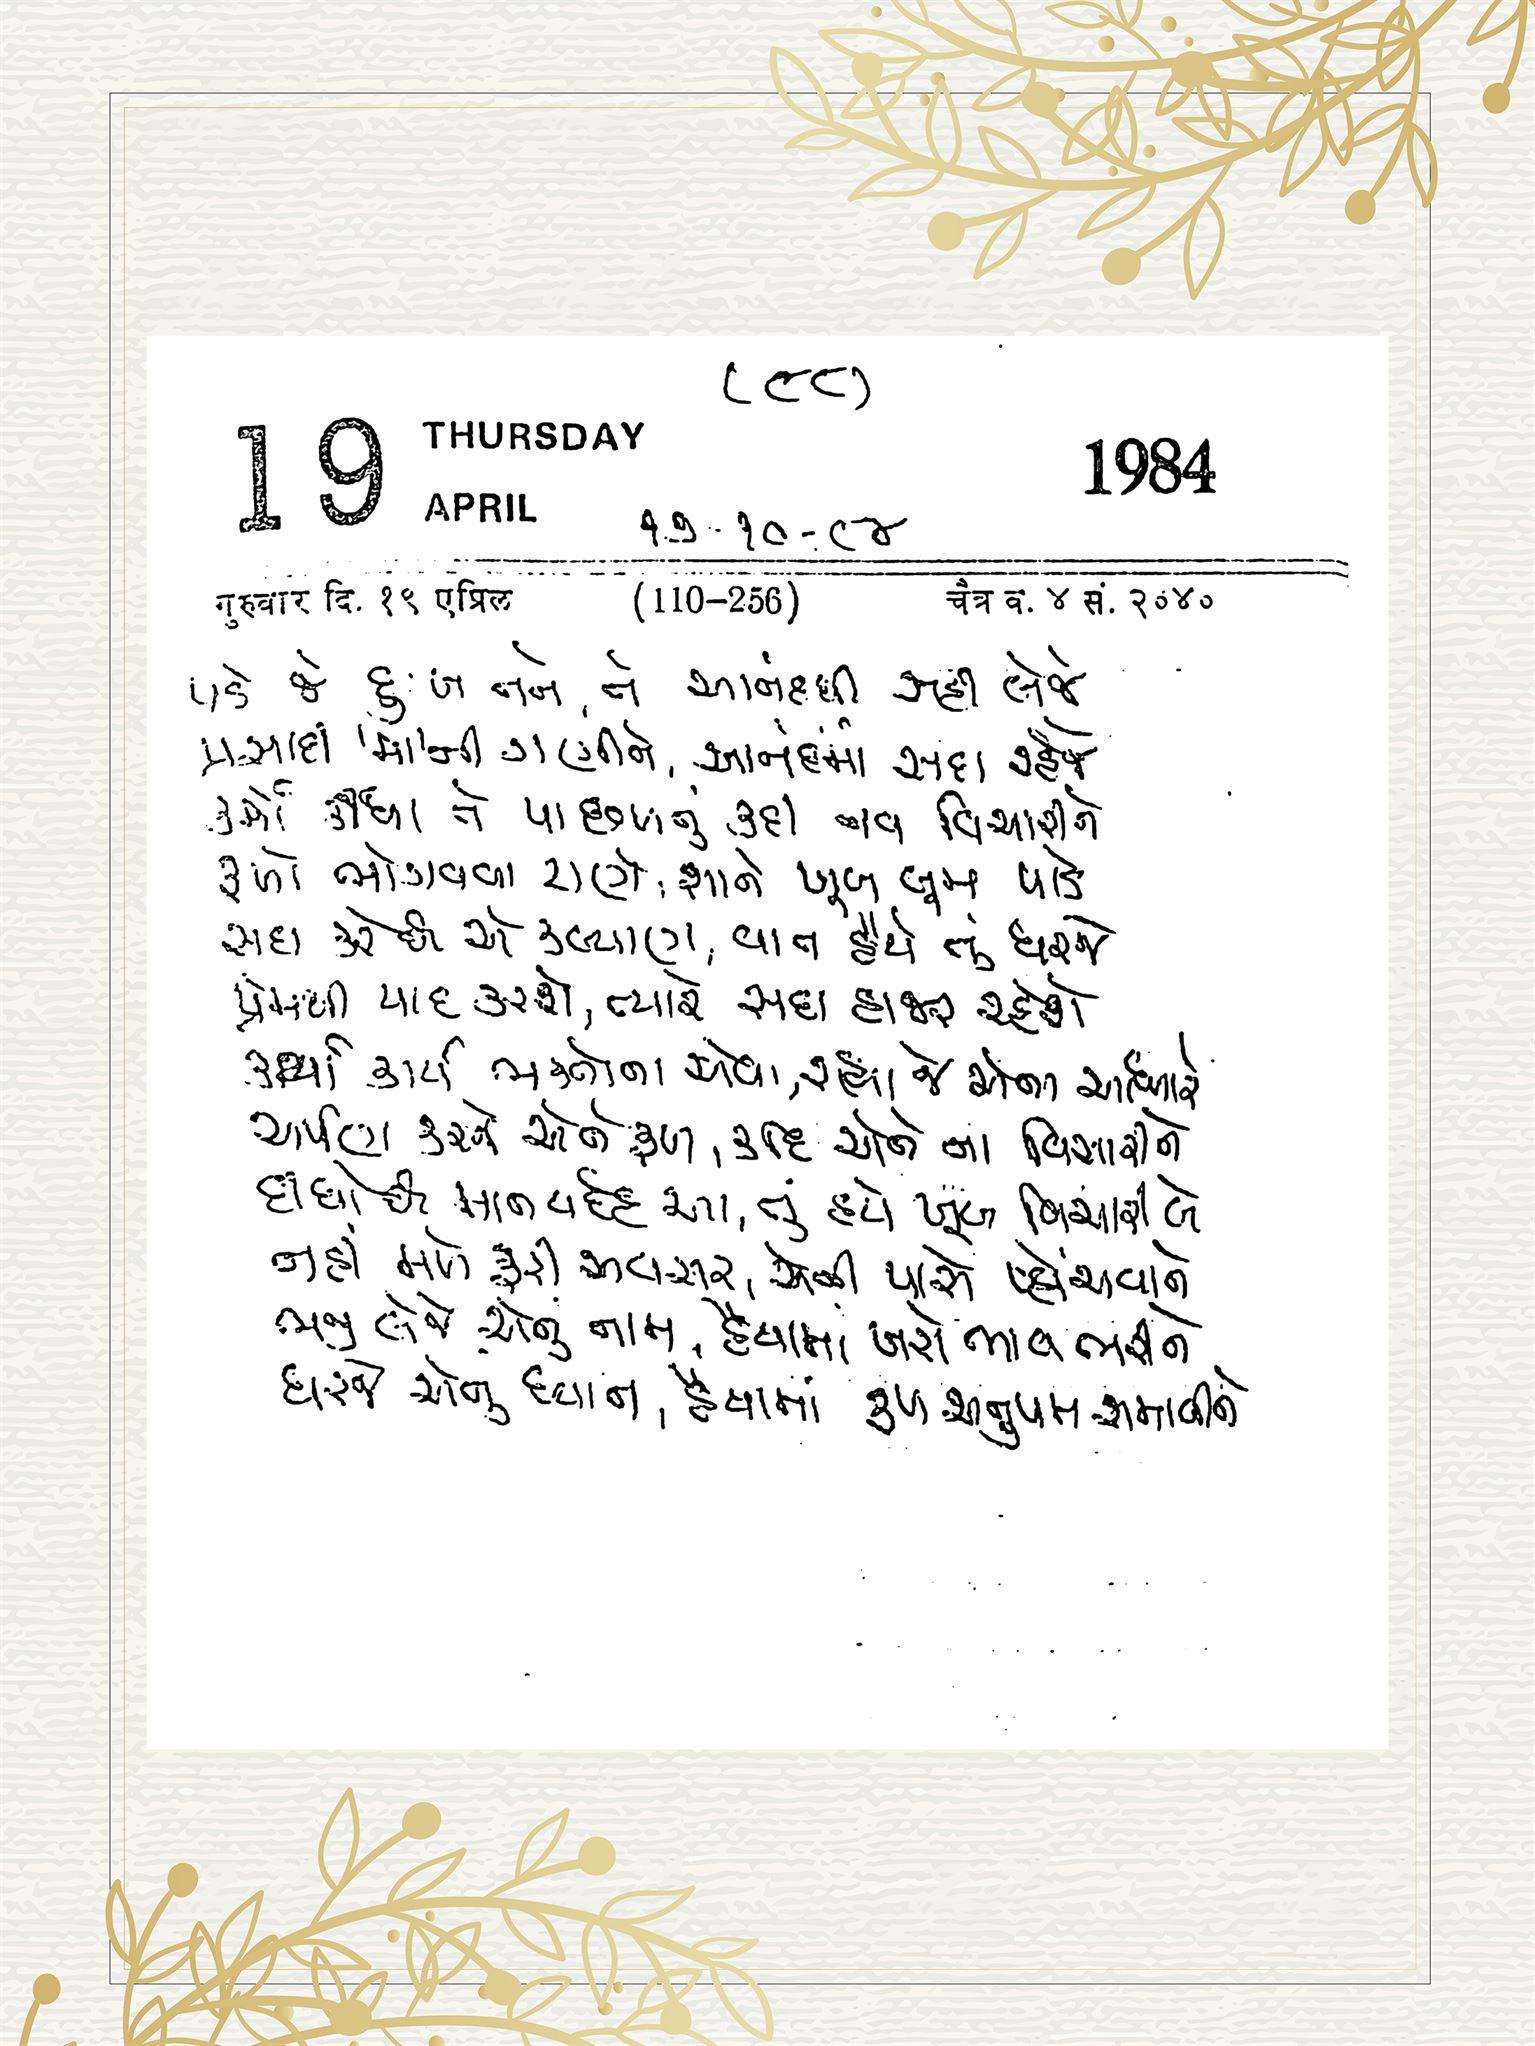 (૯૮)
19 THURSDAY APRIL 1984
૧૭-૧૦-૮૪
गुरुवार दि. १९ एप्रिल (110-256) चैत्र व. ४ सं. २०४०
પડે જે દુઃખ તને, તે આનંદથી સહી લેજે
પ્રસાદી 'મા'ની ગણીને, આનંદમાં સદા રહેજે
કર્મો કીધા તે પાછળનું કદી નવ વિચારીને
ફળો ભોગવવા ટાણે, શાને ખૂબ બૂમ પાડે
સદા કરે છે એ કલ્યાણ, વાત હૈયે તું ધરજે
પ્રેમથી યાદ કરશે, ત્યારે સદા હાજર રહેશે
કર્યાં કાર્ય ભક્તોના એવા, રહ્યા જે એના આધારે
અર્પણ કરને એને ફળ, કદિ એને ના વિસારીને
દીધો છે માનવદેહ આ, તું હવે ખૂબ વિચારી લે
નહીં મળે ફરી અવસર, એની પાસે પ્હોંચવાને
ભજી લેજે એનું નામ, હૈયામાં ખરો ભાવ ભરીને
ધરજે એનુ ધ્યાન, હૈયામાં રૂપ અનુપમ સમાવીને